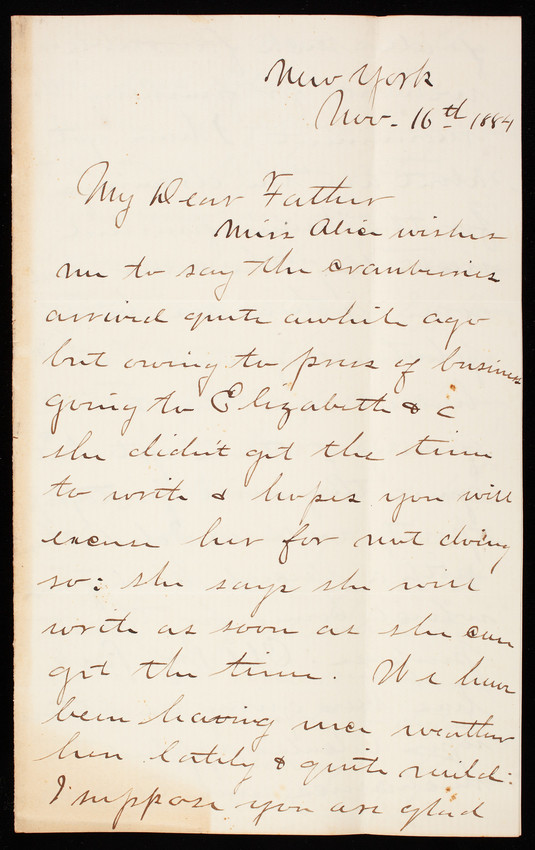 New York
Nov. 16th 1884
My Dear Father
Miss Alice wishes
me to say the cranberries
arrived quite awhile ago
but owing to press of business
going to Elizabeth & c
she didn't get the time
to write & hopes you will
excuse her for not doing
so: she says she will
write as soon as she can
get the time. We have
been having nice weather
here lately & quite mild:
I suppose you are glad